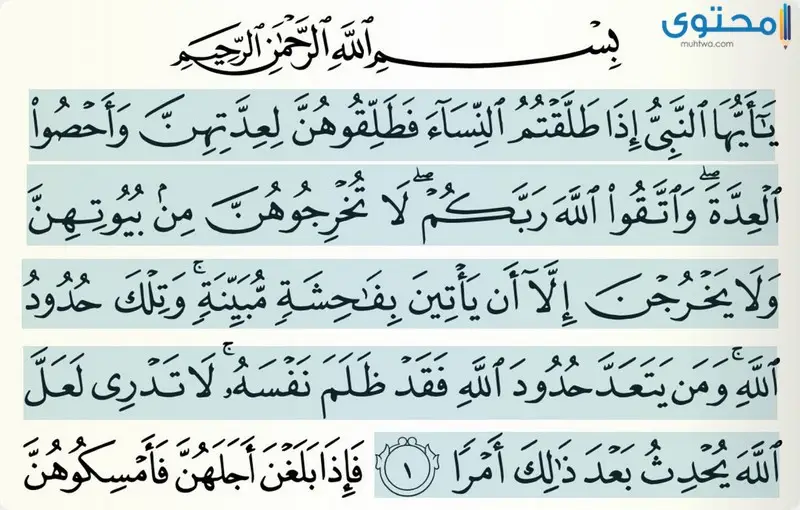 محتوى
muhtwa.com
بِسْمِ ٱللَّهِ ٱلرَّحْمَٰنِ ٱلرَّحِيمِ
يَٰٓأَيُّهَا ٱلنَّبِىُّ إِذَا طَلَّقْتُمُ ٱلنِّسَآءَ فَطَلِّقُوهُنَّ لِعِدَّتِهِنَّ وَأَحْصُوا۟
ٱلْعِدَّةَ ۖ وَٱتَّقُوا۟ ٱللَّهَ رَبَّكُمْ ۖ لَا تُخْرِجُوهُنَّ مِنۢ بُيُوتِهِنَّ
وَلَا يَخْرُجْنَ إِلَّآ أَن يَأْتِينَ بِفَٰحِشَةٍ مُّبَيِّنَةٍ ۚ وَتِلْكَ حُدُودُ
ٱللَّهِ ۚ وَمَن يَتَعَدَّ حُدُودَ ٱللَّهِ فَقَدْ ظَلَمَ نَفْسَهُۥ ۚ لَا تَدْرِى لَعَلَّ
ٱللَّهَ يُحْدِثُ بَعْدَ ذَٰلِكَ أَمْرًا ١ فَإِذَا بَلَغْنَ أَجَلَهُنَّ فَأَمْسِكُوهُنَّ